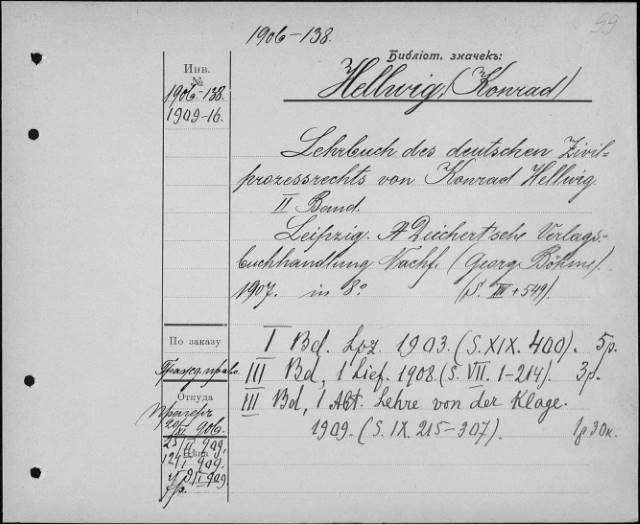 1906-138.
99
Библіот. значекъ:
Инв.
№
1906-138.
1909-16.
Hellwig, (Konrad)
Lehrbuch des deutschen Zivil-
prozessrechts von Konrad Hellwig
II Band.
Leipzig. A Deichert'sche Verlags-
buchhandlung Nachf. (Georg Böhme).
1907. in 8º (S. III + 549).
По заказу
I Bd. Lpz. 1903. (S. XIX. 400). 5р.
III Bd, 1 Lief. 1908. (S. VII. 1-214). 3р.
Откуда
III Bd, 1 Abt. Lehre von der Klage.
1909. (S. IX. 215-307). 1р 30к.
906.
909.
Цѣна
909.
909